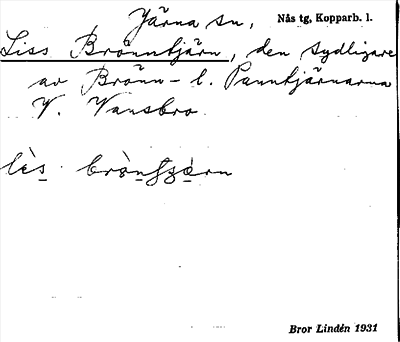 Järna sn, Nås tg, Kopparb. l.
Liss Brönntjärn, den sydligare
av Brönn- l. Panntjärnarna
V. Vansbro.
lès
Bror Lindén 1931